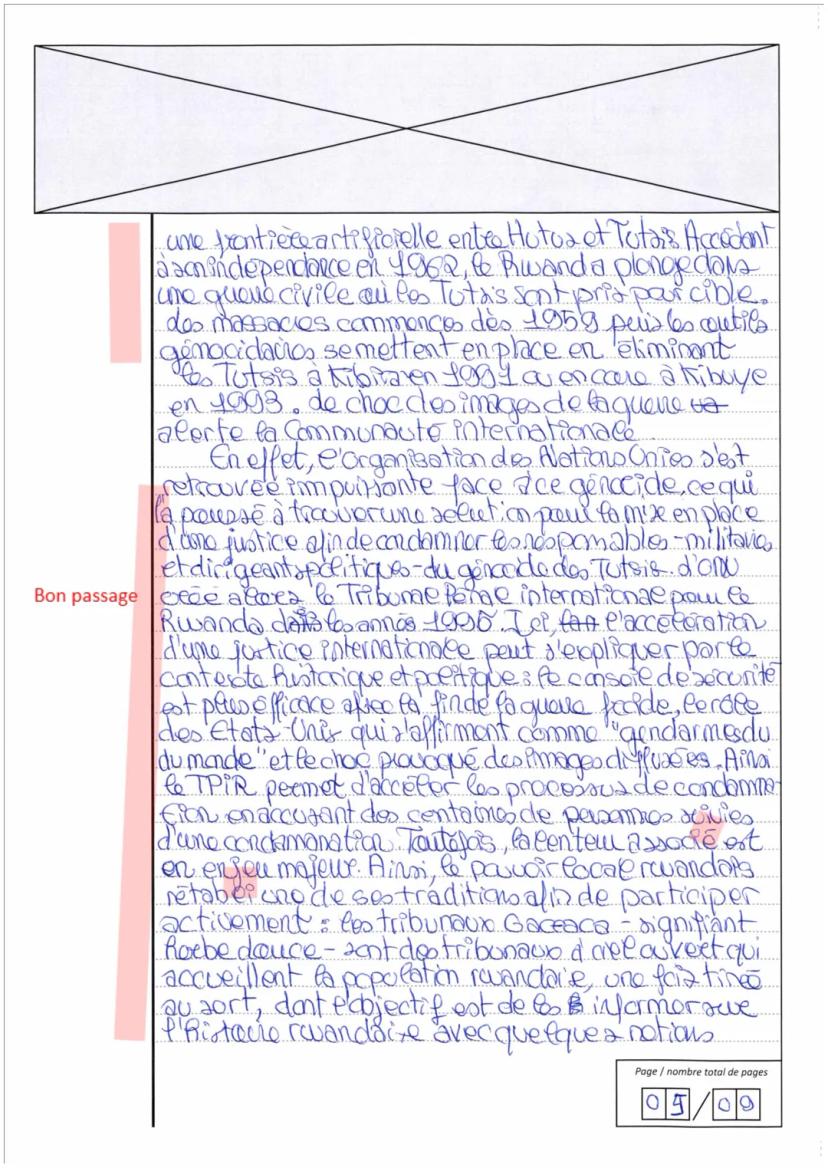 une frontière artificielle entre Hutus et Tutsis. Accédant
à son indépendance en 1962, le Rwanda plonge dans
une guerre civile où les Tutsis sont pris par cible.
des massacres commencés dès 1959 puis les outils
génocidaires se mettent en place en éliminant
les Tutsis à Kibira en 1991 ou encore à Kibuye
en 1993. de choc des images de la guerre
alerte la Communauté internationale.
En effet, l'Organisation des Nations Unies s'est
retrouvée impuissante face à ce génocide, ce qui
l'a poussé à trouver une solution pour la mise en place
d'une justice afin de condamner les responsables - militaires
et dirigeants politiques - du génocide des Tutsis. d'ONU
créé alors le Tribunal Pénal international pour le
Rwanda dans les années 1990. Ici, l'accélération
d'une justice internationale peut s'expliquer par le
contexte historique et politique : le conseil de sécurité
est plus efficace avec la fin de la guerre froide, le rôle
des Etats-Unis qui s'affirment comme "gendarmes du
du monde" et le choc provoqué des images diffusées. Ainsi
le TPIR permet d'accéler les processus de condamna-
tion en accusant des centaines de personnes suivies
d'une condamanation. Toutefois, la lenteur associé est
en enjeu majeur. Ainsi, le pouvoir local rwandais
rétabli une de ses traditions afin de participer
activement : les tribunaux Gacaca - signifiant
herbe douce - sont des tribunaux à ciel ouvert qui
accueillent la population rwandaise, une fois tirée
au sort, dont l'objectif est de les informer sur
l'histoire rwandaise avec quelques notions
Bon passage
Page / nombre total de pages
05/09